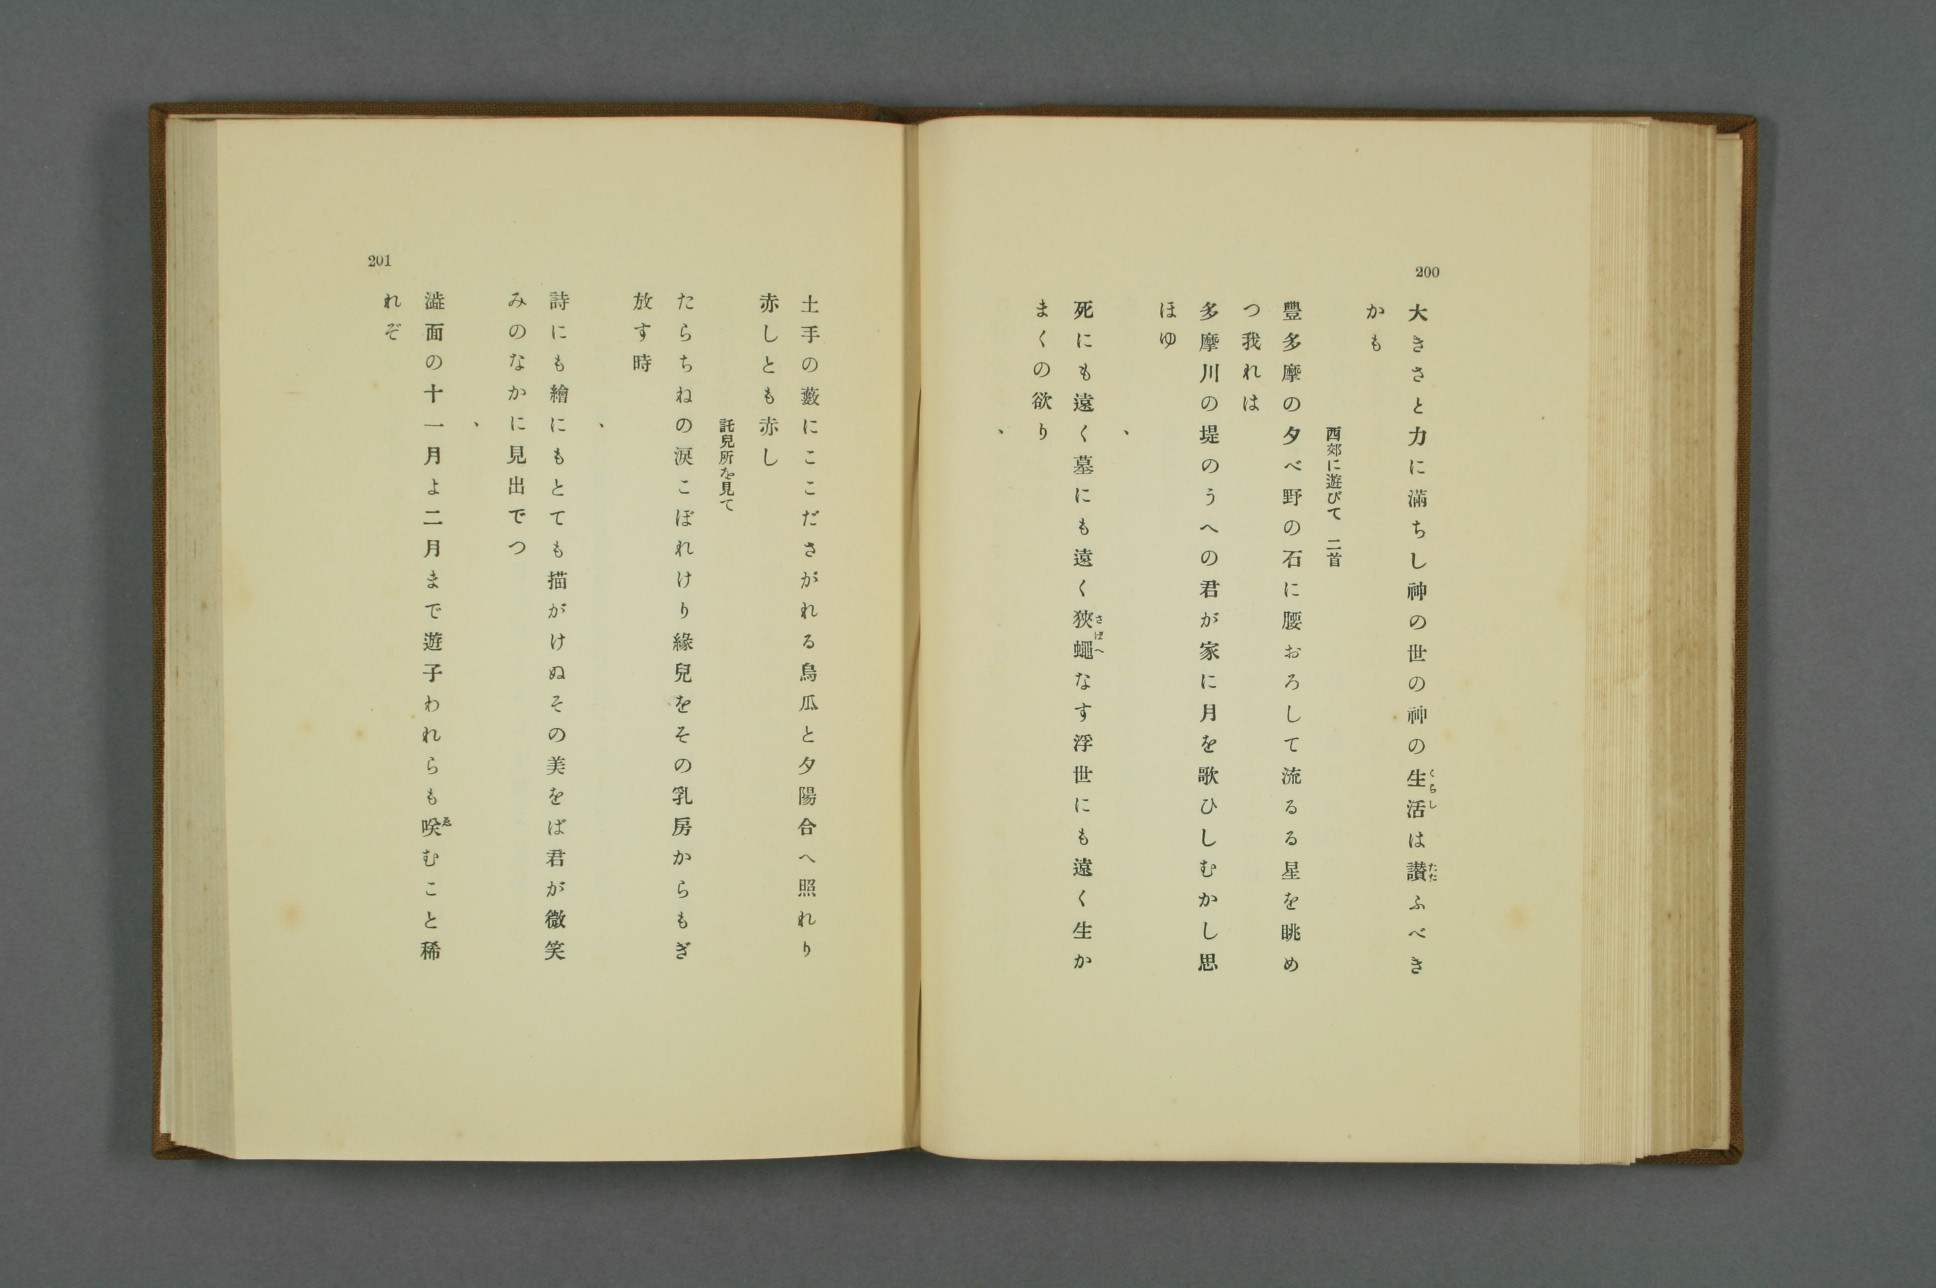 200
大きさと力に滿ちし神の世の神の生活は讃ふべき
くらし
たた
かも
西郊に遊びて 二首
豐多摩の夕べ野の石に腰おろして流るる星を眺め
つ我れは
多摩川の堤のうへの君が家に月を歌ひしむかし思
ほゆ
、
死にも遠く墓にも遠く狹蠅なす浮世にも遠く生か
さばへ
まくの欲り
、
201
土手の藪にここださがれる烏瓜と夕陽合へ照れり
赤しとも赤し
託兒所を見て
たらちねの淚こぼれけり緣兒をその乳房からもぎ
放す時
、
詩にも繪にもとても描がけぬその美をば君が微笑
みのなかに見出でつ
、
澁面の十一月よ二月まで遊子われらも咲むこと稀
ゑ
れぞ